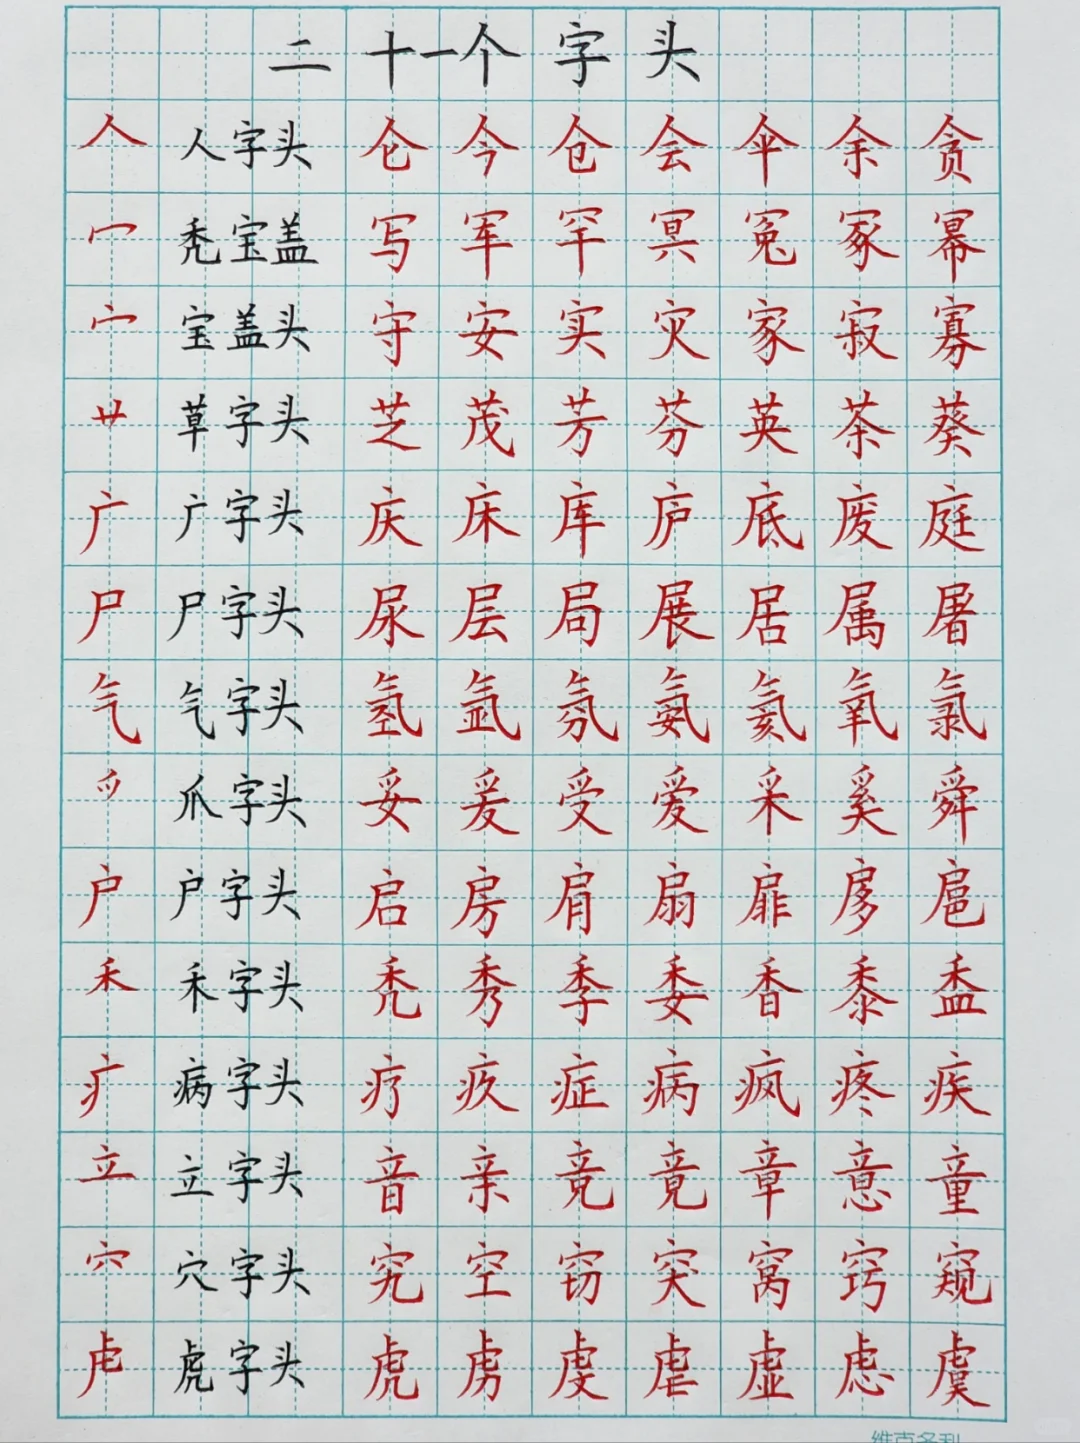 二十一个字头
人 人字头 仑 今 仓 会 伞 余 贪
冖 秃宝盖 写 军 罕 冥 冤 冢 幂
宀 宝盖头 守 安 实 灾 家 寂 寡
艹 草字头 芝 茂 芳 芬 英 茶 葵
广 广字头 庆 床 库 庐 底 废 庭
尸 尸字头 尿 层 局 展 居 属 屠
气 气字头 氢 氙 氛 氨 氦 氧 氯
爫 爪字头 妥 爰 受 爱 采 奚 舜
户 户字头 启 房 肩 扇 扉 扅 扈
禾 禾字头 秃 秀 季 委 香 黍 盉
疒 病字头 疗 疚 症 病 疯 疼 疾
立 立字头 音 亲 竞 竟 章 意 童
穴 穴字头 究 空 窃 突 窝 窍 窥
虍 虎字头 虎 虏 虔 虐 虚 虑 虞